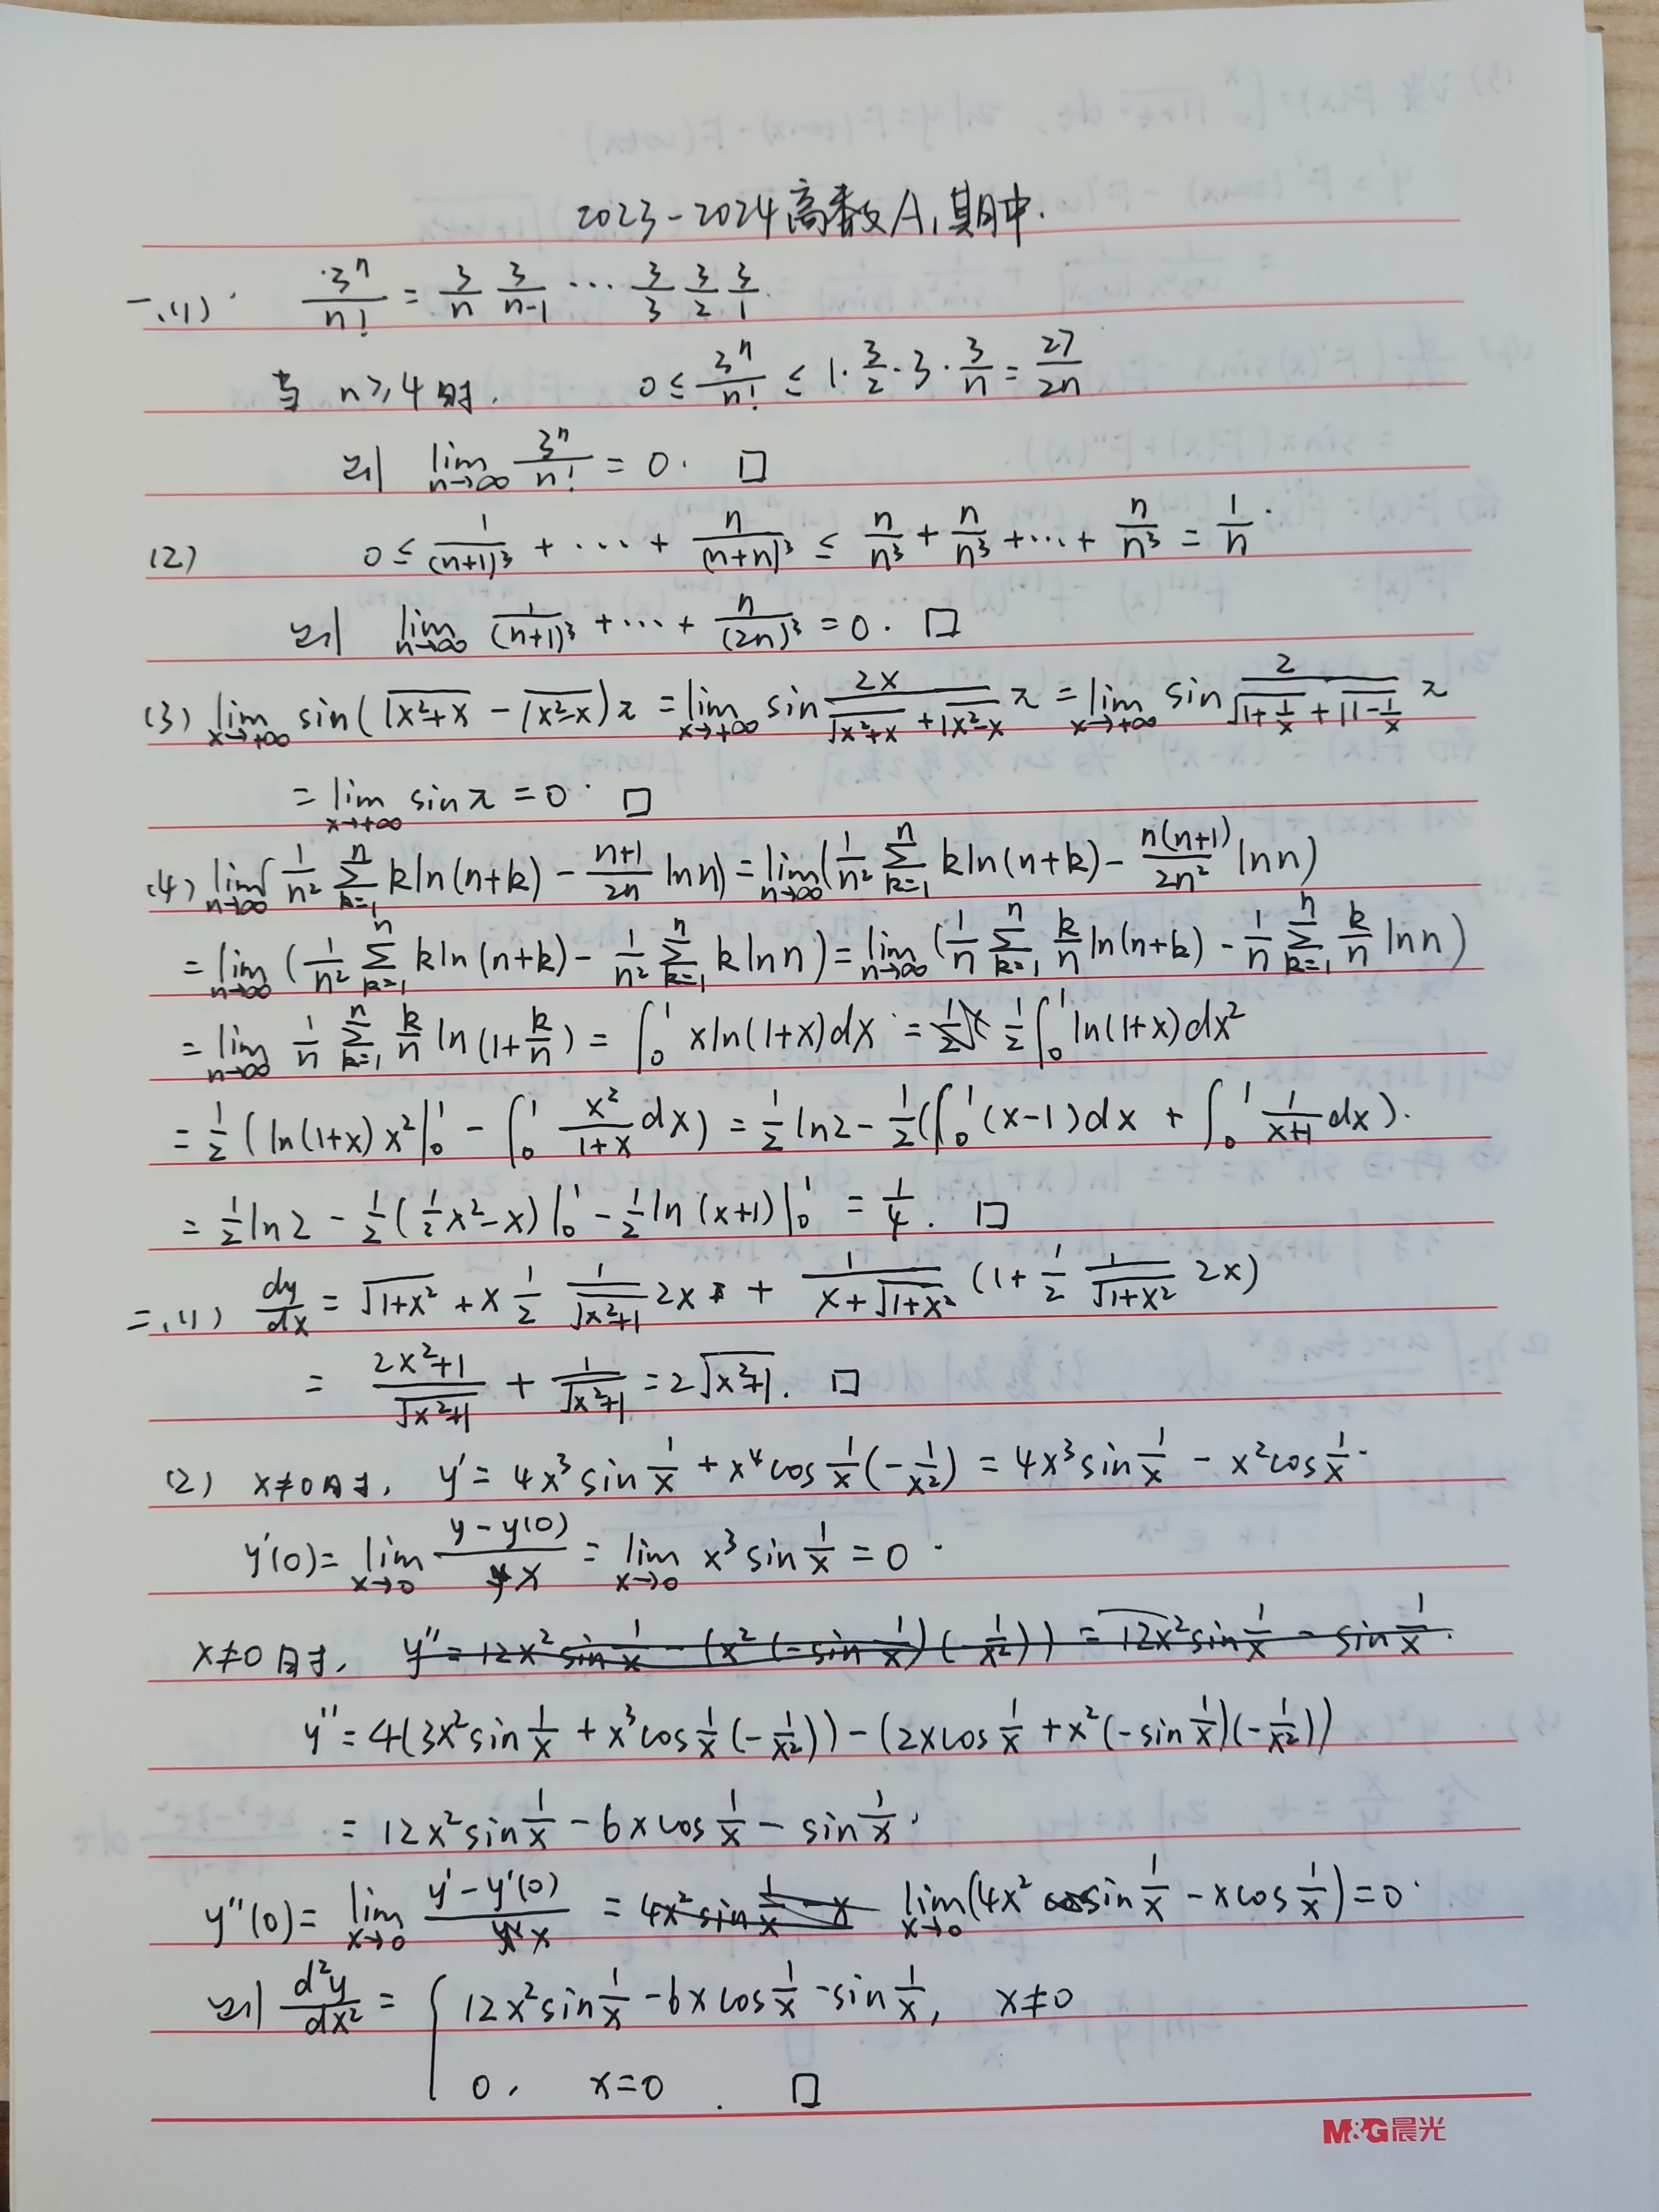 2023-2024高数A1期中.
一.(1) 3^n/n! = 3/n 3/(n-1) ⋯ 3/3 3/2 3/1.
当 n≥4时. 0 ≤ 3^n/n! ≤ 1·3/2·3·3/n = 27/2n
则 lim_{n→∞} 3^n/n! = 0. □
(2) 0 ≤ 1/(n+1)^3 + ⋯ + n/(n+n)^3 ≤ n/n^3 + n/n^3 + ⋯ + n/n^3 = 1/n.
则 lim_{n→∞} 1/(n+1)^3 + ⋯ + n/(2n)^3 = 0. □
(3) lim_{x→+∞} sin(√(x²+x) - √(x²-x))π = lim_{x→+∞} sin 2x/(√(x²+x) + √(x²-x)) π = lim_{x→+∞} sin 2/(√(1+1/x) + √(1-1/x)) π
= lim_{x→+∞} sinπ = 0. □
(4) lim_{n→∞}(1/n² ∑_{k=1}^n kln(n+k) - (n+1)/2n lnn) = lim_{n→∞}(1/n² ∑_{k=1}^n kln(n+k) - n(n+1)/2n² lnn)
= lim_{n→∞} (1/n² ∑_{k=1}^n kln(n+k) - 1/n² ∑_{k=1}^n klnn) = lim_{n→∞} (1/n ∑_{k=1}^n k/n ln(n+k) - 1/n ∑_{k=1}^n k/n lnn)
= lim_{n→∞} 1/n ∑_{k=1}^n k/n ln(1+k/n) = ∫_0^1 xln(1+x)dx = 1/2 ∫_0^1 ln(1+x)dx²
= 1/2 (ln(1+x)x²|_0^1 - ∫_0^1 x²/(1+x) dx) = 1/2 ln2 - 1/2(∫_0^1 (x-1)dx + ∫_0^1 1/(x+1) dx).
= 1/2 ln2 - 1/2(1/2 x²-x)|_0^1 - 1/2 ln(x+1)|_0^1 = 1/4. □
二.(1) dy/dx = √(1+x²) + x 1/2 1/√(x²+1) 2x + 1/(x+√(1+x²)) (1 + 1/2 1/√(1+x²) 2x)
= (2x²+1)/√(x²+1) + 1/√(x²+1) = 2√(x²+1). □
(2) x≠0时, y' = 4x³sin1/x + x⁴cos1/x(-1/x²) = 4x³sin1/x - x²cos1/x.
y'(0) = lim_{x→0} (y-y(0))/x = lim_{x→0} x³sin1/x = 0.
x≠0时, y'' = 12x² sin1/x - (x²(-sin1/x)(-1/x²)) = 12x²sin1/x - sin1/x.
y'' = 4(3x²sin1/x + x³cos1/x(-1/x²)) - (2xcos1/x + x²(-sin1/x)(-1/x²))
= 12x²sin1/x - 6xcos1/x - sin1/x.
y''(0) = lim_{x→0} (y'-y'(0))/x = 4x²sin1/x - x lim_{x→0}(4x² sin1/x - xcos1/x) = 0.
则 d²y/dx² = { 12x²sin1/x - 6xcos1/x - sin1/x, x≠0
0, x=0. □
M&G晨光